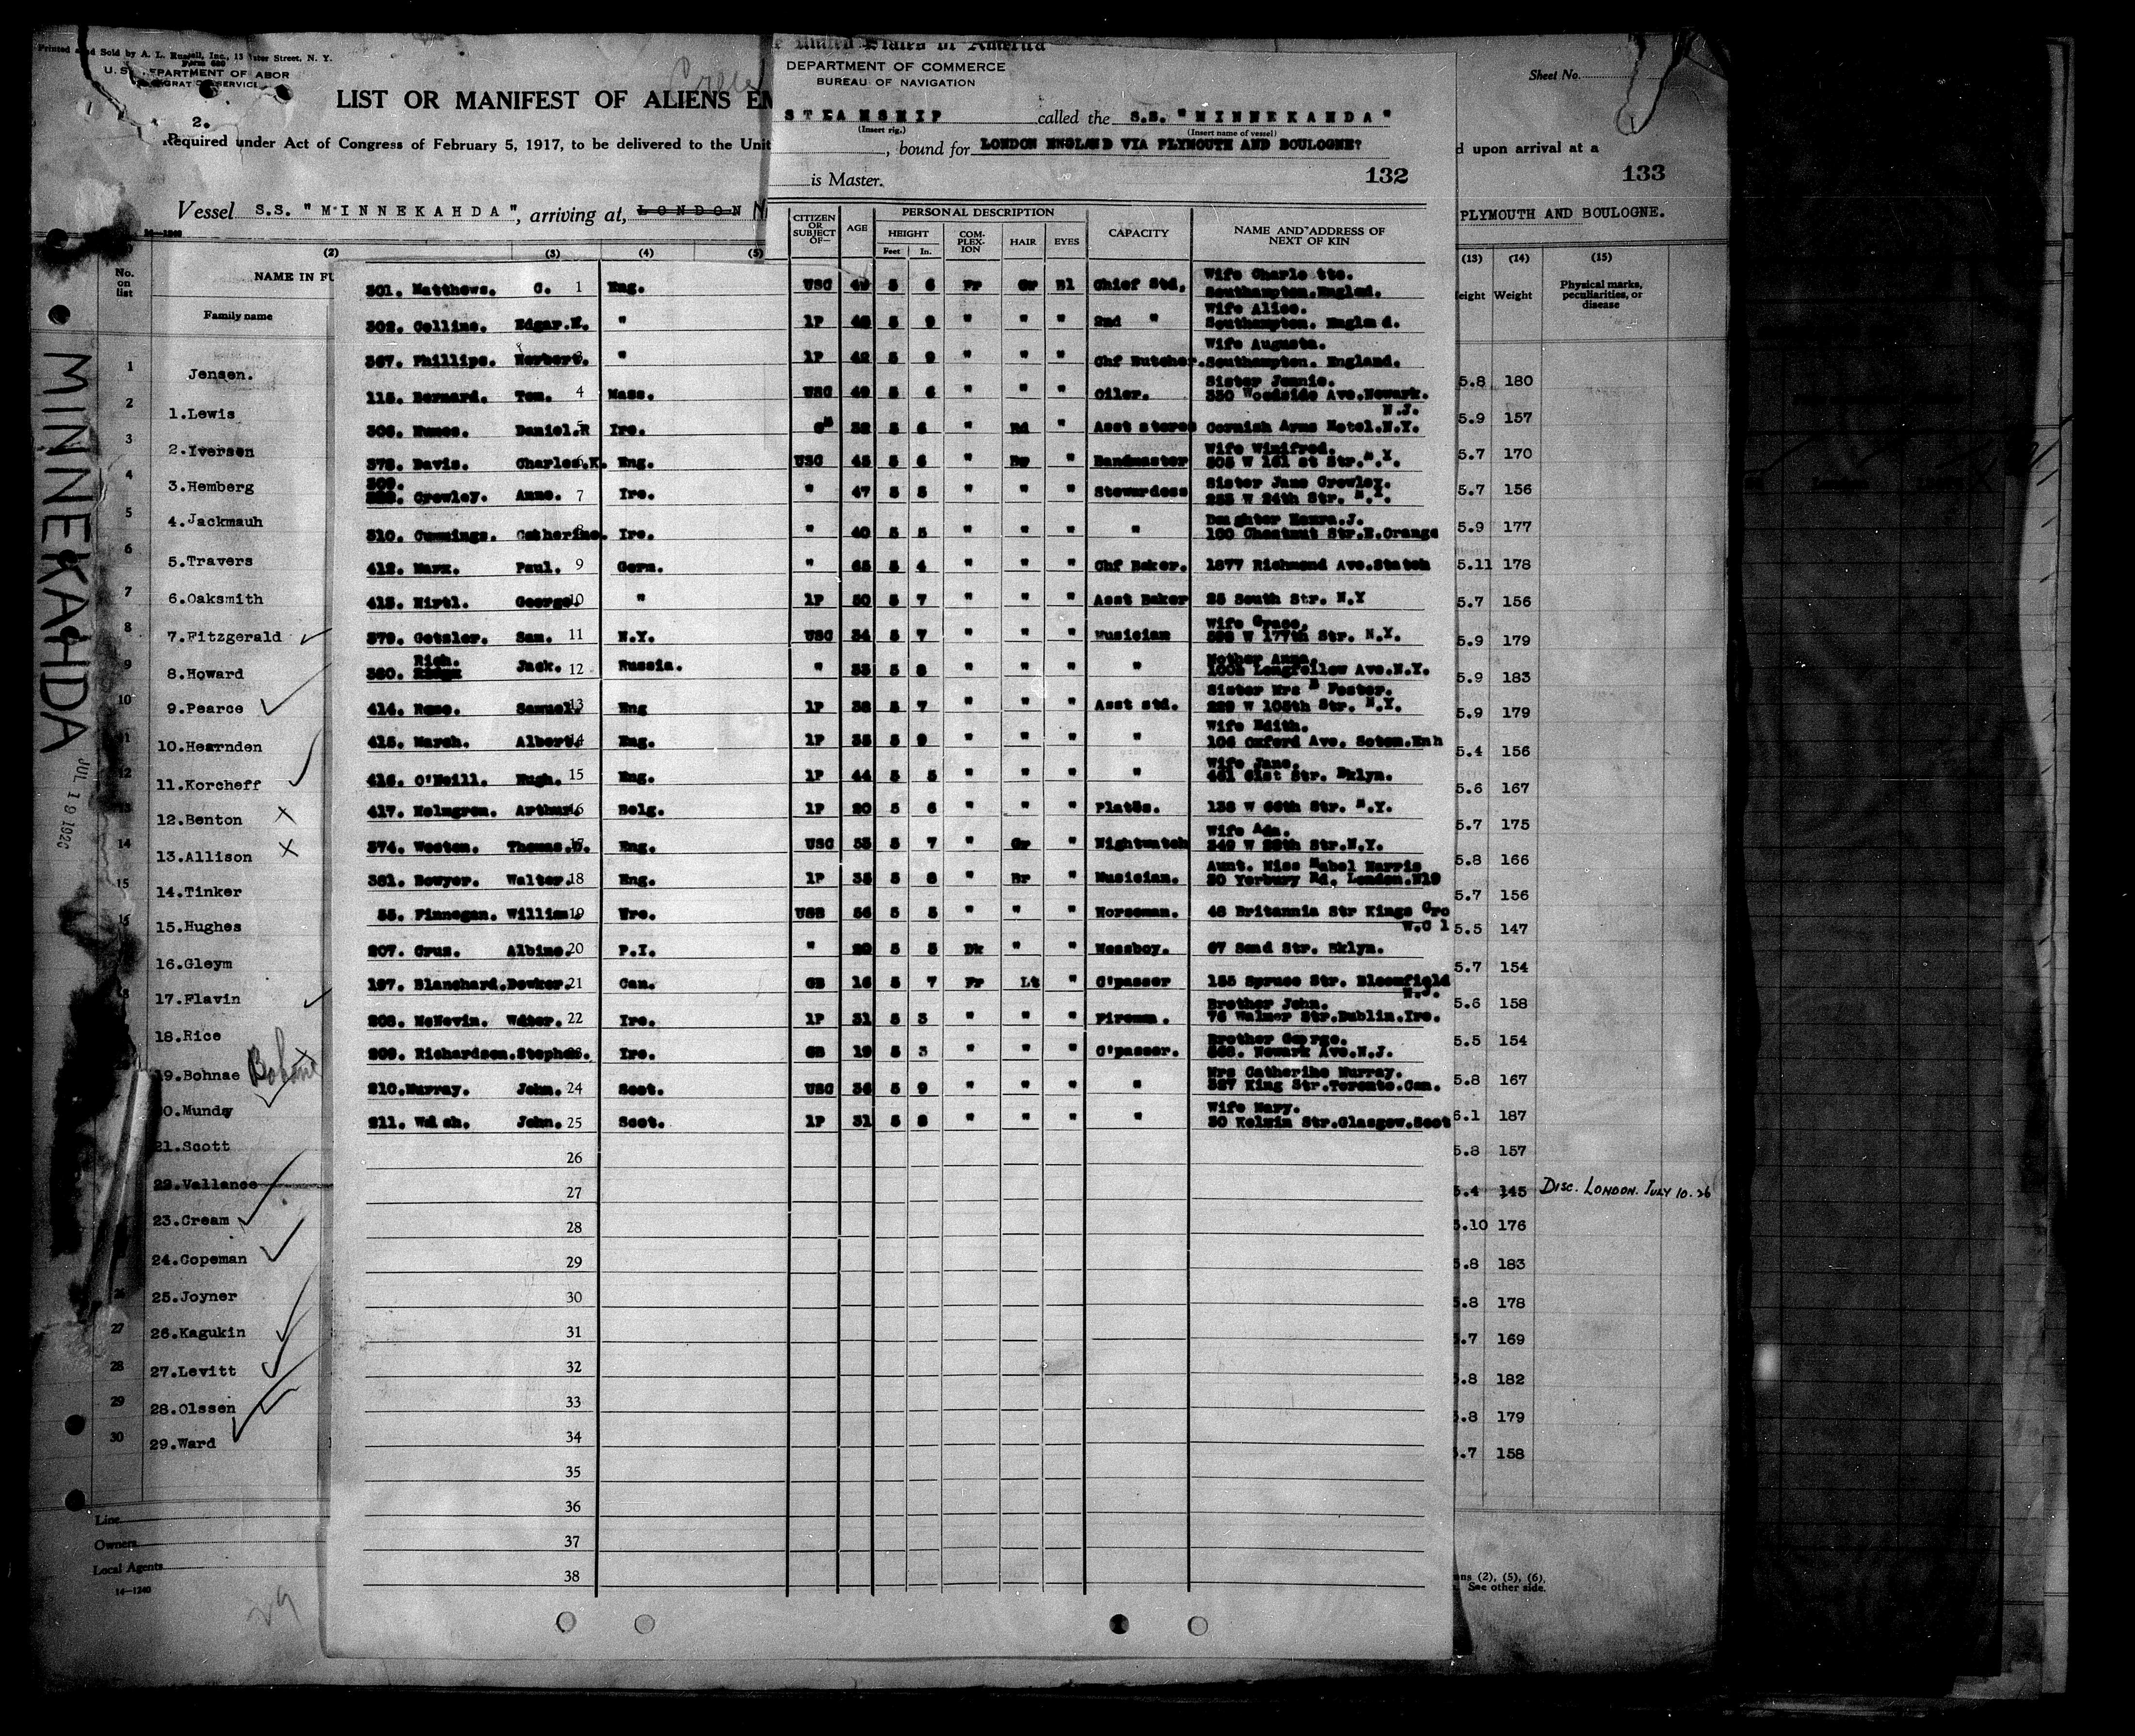 Printed and Sold by A. L. Russell, Inc., 13 Water Street, N. Y.
Form 680
U. S. DEPARTMENT OF LABOR
IMMIGRATION SERVICE
LIST OR MANIFEST OF ALIENS EM
2.
Required under Act of Congress of February 5, 1917, to be delivered to the Unit
Vessel S.S. "MINNEKAHDA", arriving at, LONDON
MINNEKAHDA
JUL 19 1926
(2) (3) (4) (5)
No. on list
NAME IN FU
Family name
1 Jensen.
2 1.Lewis
3 2.Iversen
4 3.Hemberg
5 4.Jackmauh
6 5.Travers
7 6.Oaksmith
8 7.Fitzgerald
9 8.Howard
10 9.Pearce
11 10.Hearnden
12 11.Korcheff
13 12.Benton
14 13.Allison
15 14.Tinker
16 15.Hughes
16.Gleym
18 17.Flavin
18.Rice
19.Bohnae
20.Mundy
21.Scott
22.Vallance
23.Cream
24.Copeman
26 25.Joyner
27 26.Kagukin
28 27.Levitt
29 28.Olssen
30 29.Ward
Line
Owners
Local Agents
14—1240
29
e United States of America
DEPARTMENT OF COMMERCE
BUREAU OF NAVIGATION
STEAMSHIP called the S.S. "MINNEKAHDA"
(Insert rig.) (Insert name of vessel)
, bound for LONDON ENGLAND VIA PLYMOUTH AND BOULOGNE?
is Master. 132
CITIZEN OR SUBJECT OF— AGE PERSONAL DESCRIPTION CAPACITY NAME AND ADDRESS OF NEXT OF KIN
HEIGHT COM-PLEX-ION HAIR EYES
Feet In.
301. Matthews. C. 1 Eng. USC 5 6 Fr Gr Bl Chief Std, Wife Charlotte. Southampton.England.
302. Collins. Edgar.H. " 1P 5 9 " " " 2nd " Wife Alice. Southampton. England.
367. Phillips. Herbert. " 1P 42 5 9 " " " Chf Butcher. Wife Augusta. Southampton. England.
115. Bernard. Tom. 4 Mass. USC 49 5 6 " " " Oiler. Sister Jennie. 330 Woodside Ave.Newark. N.J.
306. Daniel.R 5 Ire. 5 6 " Rd " Asst stores Cornish Arms Hotel.N.Y.
378. Davis. Charles.K. Eng. USC 45 5 6 " Br " Bandmaster Wife Winifred. 505 W 161 st Str.N.Y.
309. Crowley. Anne. 7 Ire. " 47 5 5 " " " Stewardess Sister Jane Crowley. 255 W 24th Str. N.Y.
310. Cummings. Catherine. Ire. " 40 5 5 " " " " Daughter 160 Chestnut Str.E.Orange
412. Marx. Paul. 9 Germ. " 5 4 " " " Chf Baker. 1877 Richmond Ave.Staten
413. Hirtl. George. 10 " 1P 50 5 7 " " " Asst Baker 25 South Str. N.Y
379. Getzler. Sam. 11 N.Y. USC 34 5 7 " " " Musician Wife Grace. W 177th Str. N.Y.
380. Rich. Jack. 12 Russia. " 33 5 8 " " " " Mother Anna. Longfellow Ave.N.Y.
414. Samuel. 13 Eng 1P 38 5 7 " " " Asst std. Sister Mrs Foster. 229 W 105th Str. N.Y.
415. Marsh. Albert. 14 Eng. 1P 35 5 9 " " " " Wife Edith. 106 Oxford Ave. Soton.Enh
416. O'Neill. Hugh. 15 Eng. 1P 44 5 5 " " " " Wife Jane. 461 61st Str. Bklyn.
417. Holmgren. Arthur. 16 Belg. 1P 20 5 6 " " " Plates. 138 W 66th Str. N.Y.
374. Weston. Thomas.D. 17 Eng. USC 55 5 7 " Gr " Nightwatch Wife Ada. 249 W 20th Str.N.Y.
381. Bowyer. Walter. 18 Eng. 1P 35 5 8 " Br " Musician. Aunt. Miss Mabel Harris 30 Yerbury Rd. London.N19
55. Finnegan. William. 19 Ire. 56 5 5 " " " Horseman. 48 Britannia Str Kings Cro W.C 1
207. Cruz. Albino. 20 P.I. " 5 5 Dk " " Messboy. 67 Sand Str. Bklyn.
197. Blanchard.Bowker. 21 Can. GB 16 5 7 Fr Lt " C'passer 155 Spruce Str. Bloomfield N.J.
208. McNevin. Walter. 22 Ire. 1P 31 5 3 " " " Fireman. Brother John. 76 Walmer Str.Dublin.Ire.
209. Richardson.Stephen. Ire. GB 19 5 3 " " " C'passer. Brother George. Newark Ave.N.J.
210.Murray. John. 24 Scot. USC 36 5 9 " " " " Mrs Catherine Murray. 327 King Str.Toronto.Can.
211. Walsh. John. 25 Scot. 1P 31 5 8 " " " " Wife Mary. 30 Kelwin Str.Glasgow.Scot
26
27
28
29
30
31
32
33
34
35
36
37
38
Sheet No.
d upon arrival at a
133
PLYMOUTH AND BOULOGNE.
(13) (14) (15)
Height Weight Physical marks, peculiarities, or disease
5.8 180
5.9 157
5.7 170
5.7 156
5.9 177
5.11 178
5.7 156
5.9 179
5.9 183
5.9 179
5.4 156
5.6 167
5.7 175
5.8 166
5.7 156
5.5 147
5.7 154
5.6 158
5.5 154
5.8 167
6.1 187
5.8 157
5.4 145 DISC. LONDON. JULY 10.26
5.10 176
5.8 183
5.8 178
5.7 169
5.8 182
5.8 179
5.7 158
ns (2), (5), (6).
See other side.